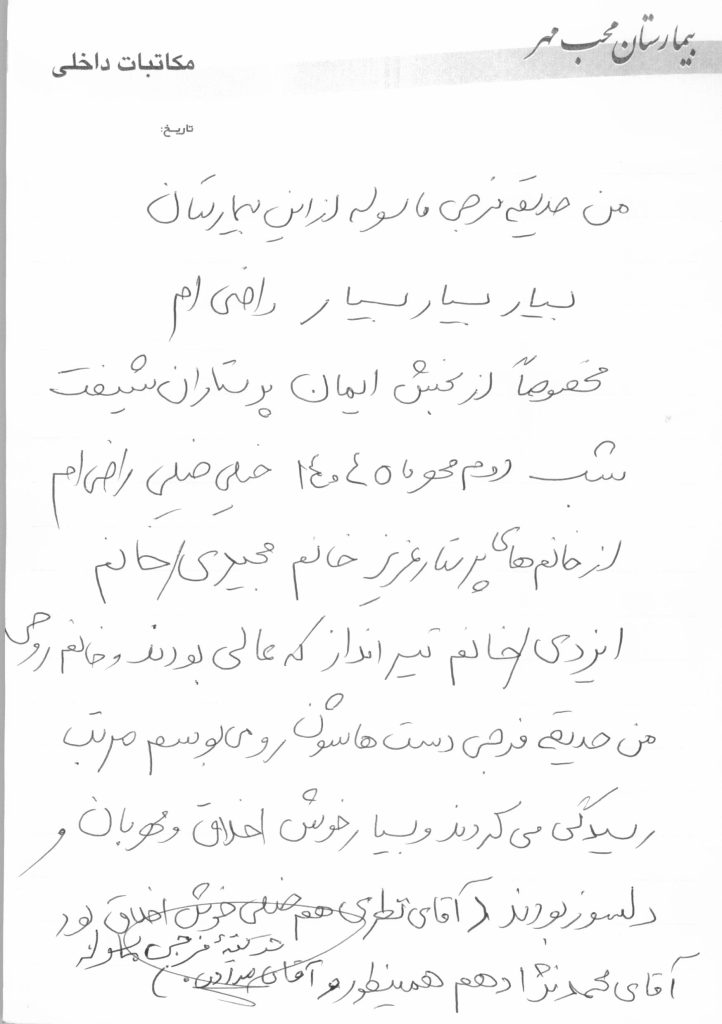 بیمارستان محب مهر
مکاتبات داخلی
تاریخ:
من صدیقه فرجی ماسوله از این بیمارستان
بسیار بسیار بسیار راضی ام
مخصوصاً از بخش ایمان پرستاران شیفت
شب دوم خیلی خیلی راضی ام
از خانم های پرستار عزیز خانم مجیدی / خانم
ایزدی / خانم تیر انداز که عالی بودند و خانم روحی
من صدیقه فرجی دست هاشون رو می بوسم مرتب
رسیدگی می کردند و بسیار خوش اخلاق و مهربان و
دلسوز بودند (آقای نظری هم خیلی خوش اخلاق بود
صدیقه فرجی ماسوله
آقای محمدنژاد هم همینطور و آقای )